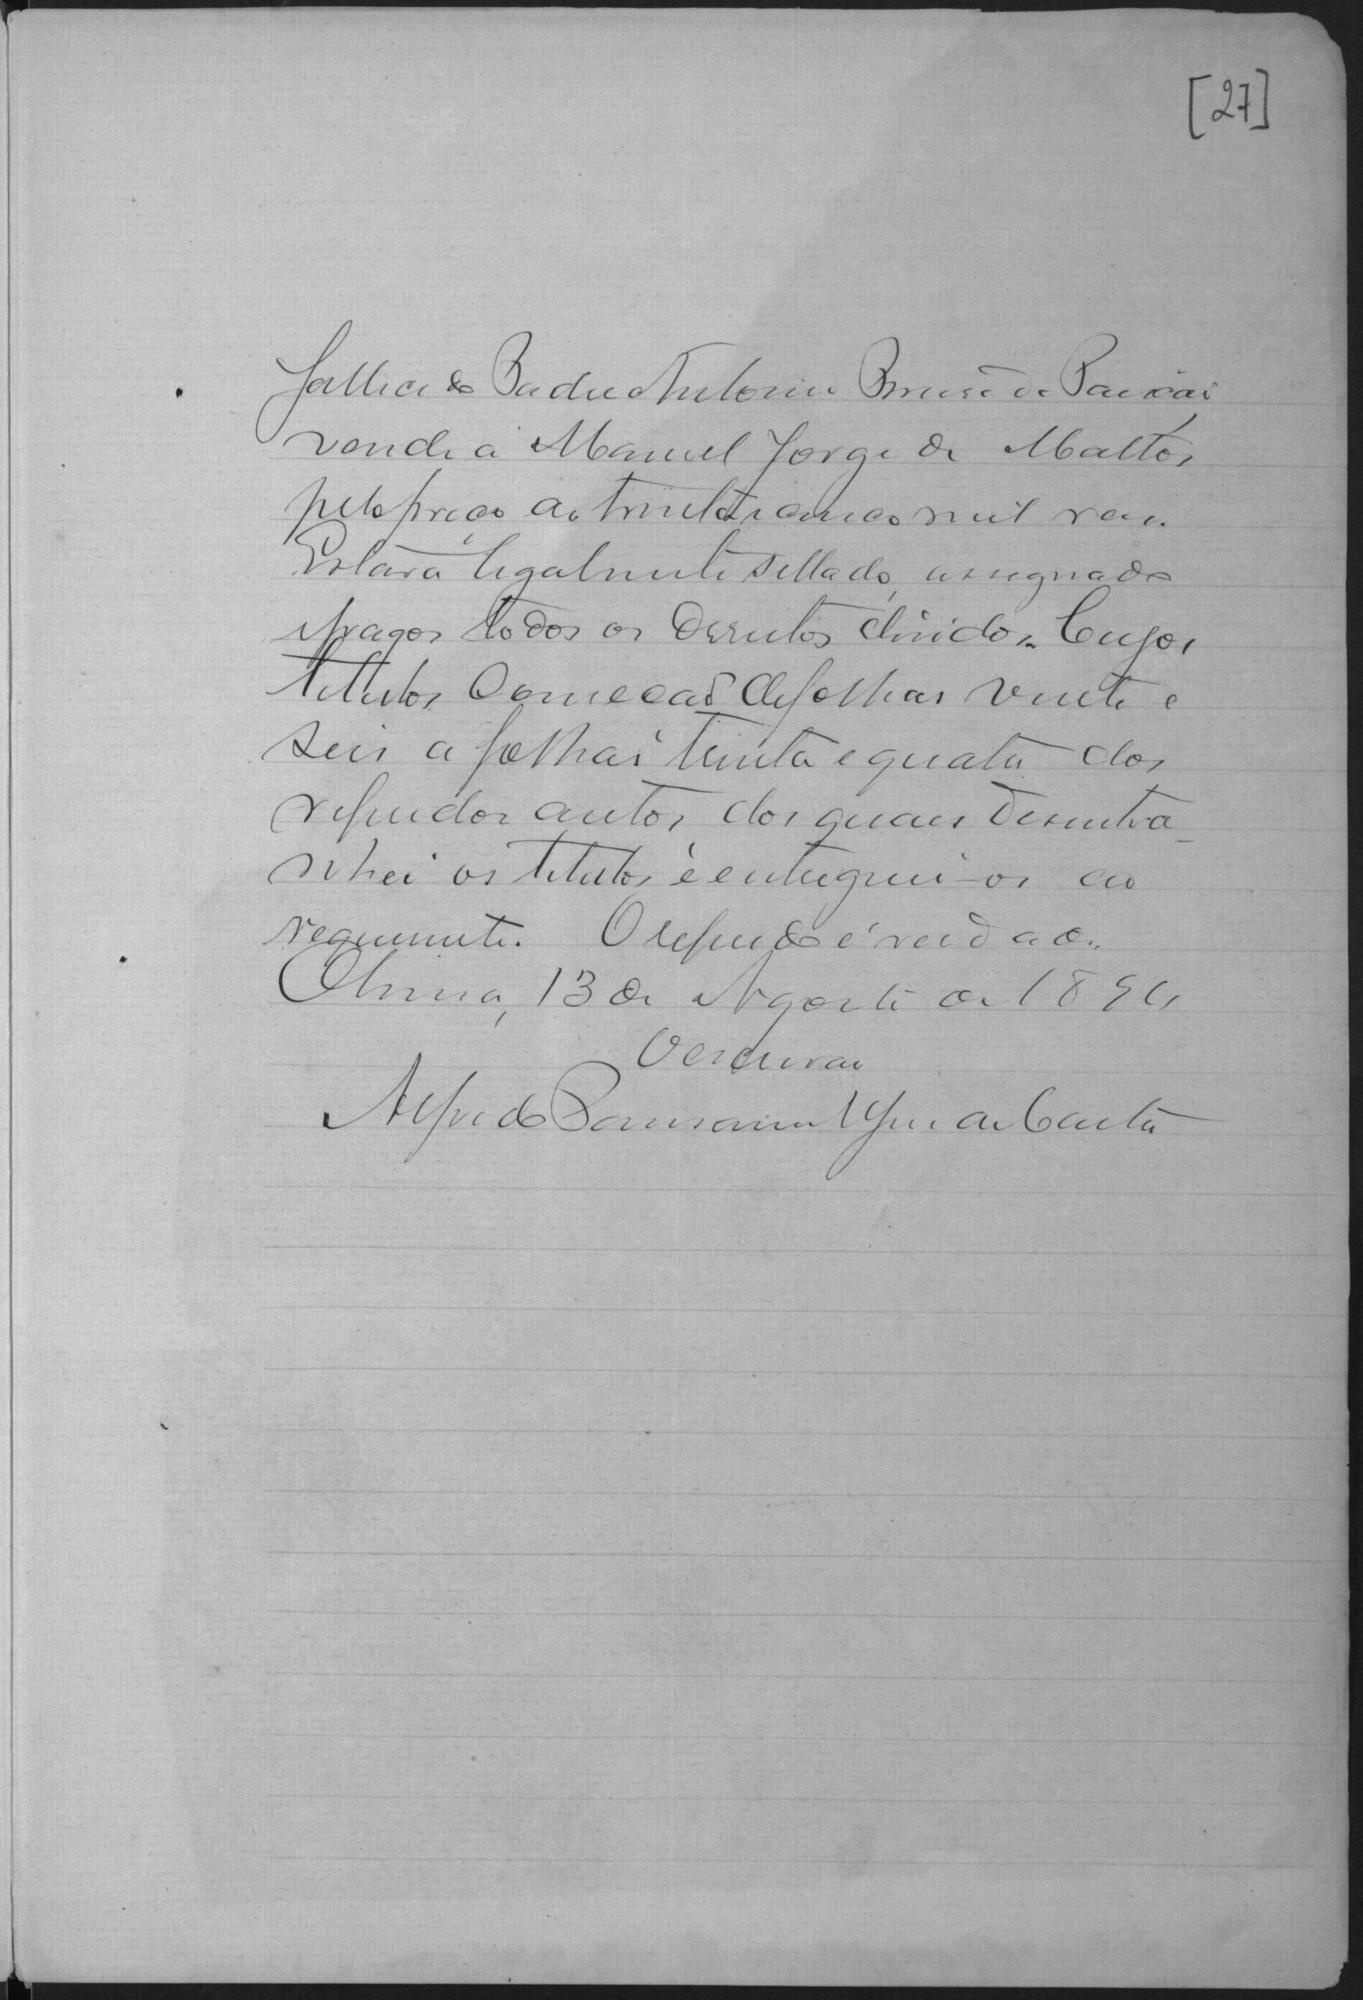 [27]
Fallecido Padre Antonio Bruno da Paixão
vende a Manuel Jorge de Mattos
pelo preço de trinta e cinco mil reis.
Estava legalmente sellado, assignado
e pagos todos os Direitos devidos. Cujos
titulos começaõ de folhas vinte e
seis a folhas trinta e quatro dos
referidos autos, dos quaes desentra-
nhei os titulos e entreguei-os ao
requerente. O referido é verdade.
13 de Agosto de 189
O escrivão
Alfredo de Costa